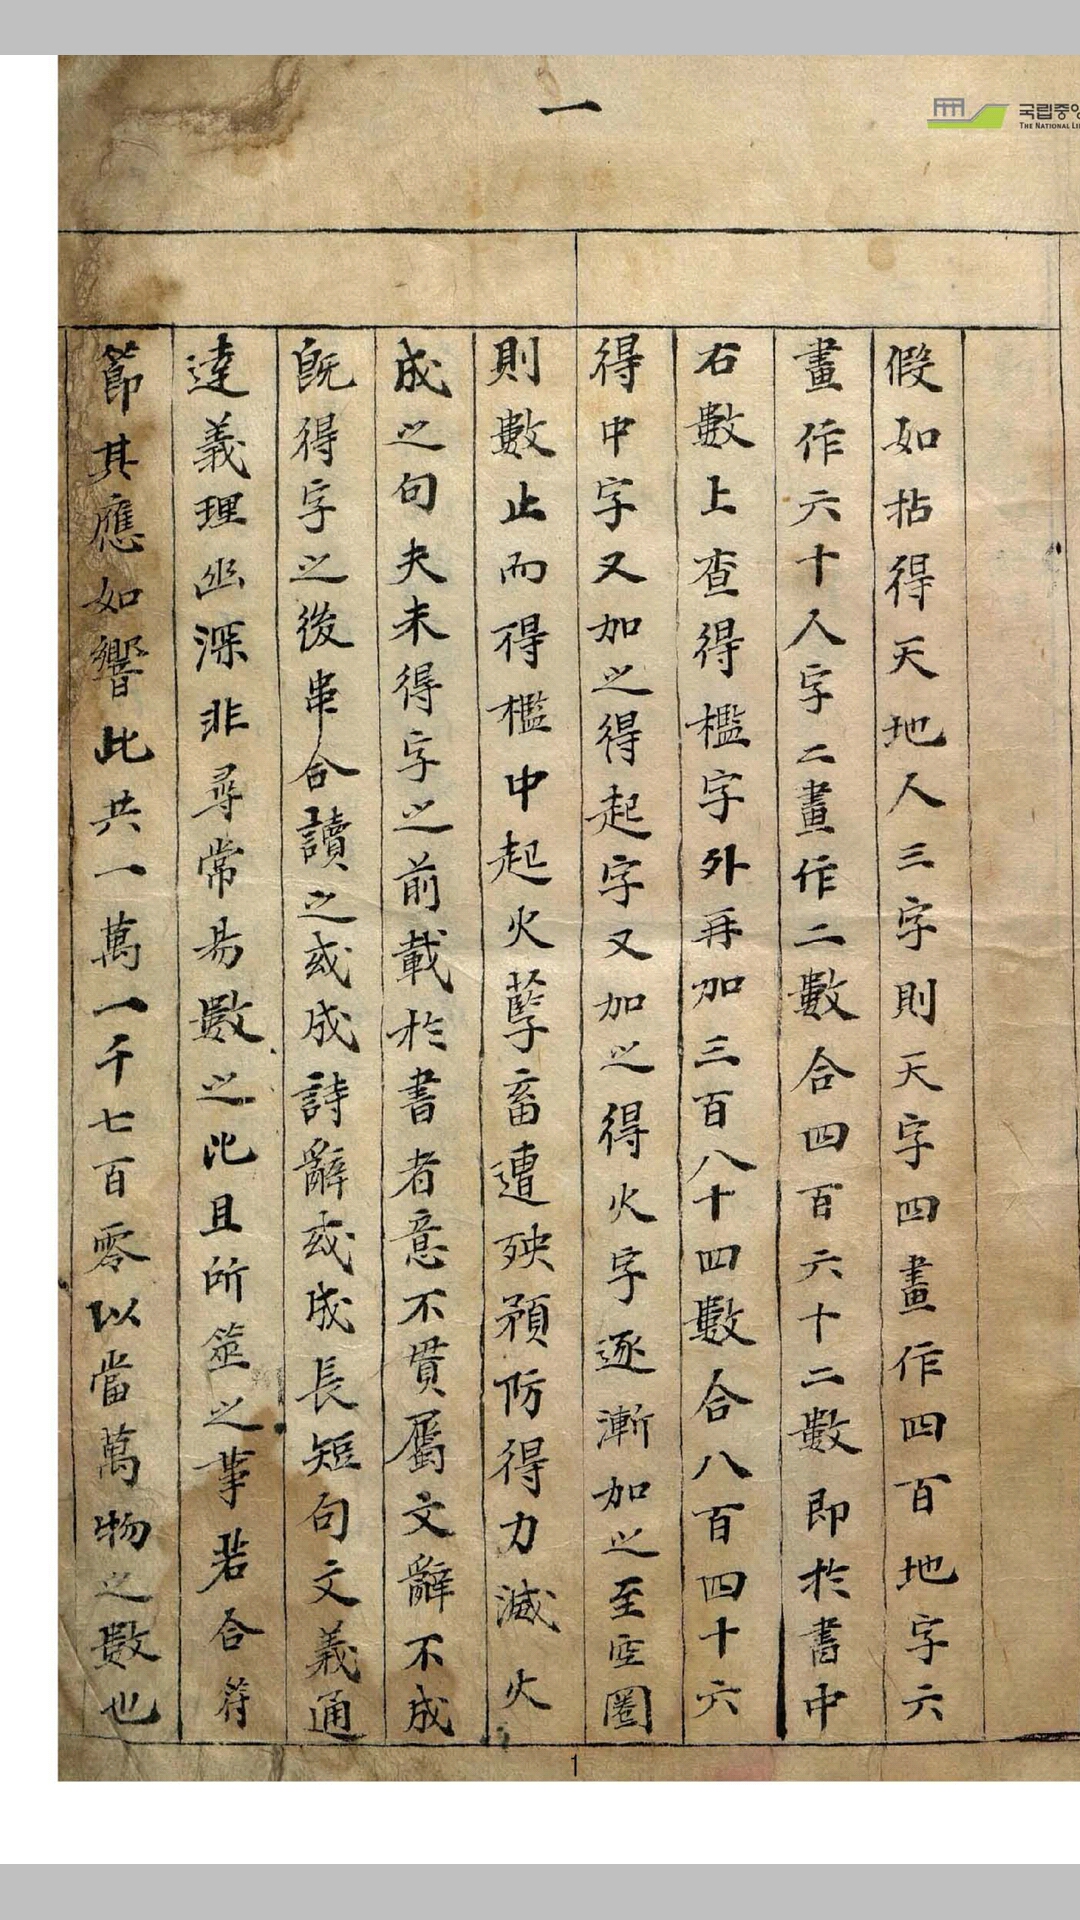 一
국립중앙
THE NATIONAL LI
假如拈得天地人三字則天字四畫作四百地字六
畫作六十人字二畫作二數合四百六十二數即於書中
右數上查得檻字外再加三百八十四數合八百四十六
得中字又加之得起字又加之得火字逐漸加之至空圈
則數止而得檻中起火孽畜遭殃預防得力滅火
成之句夫未得字之前載於書者意不貫屬文辭不成
旣得字之後串合讀之或成詩辭或成長短句文義通
達義理幽深非尋常易數之比且所筮之事若合符
節其應如響此共一萬一千七百零以當萬物之數也
1